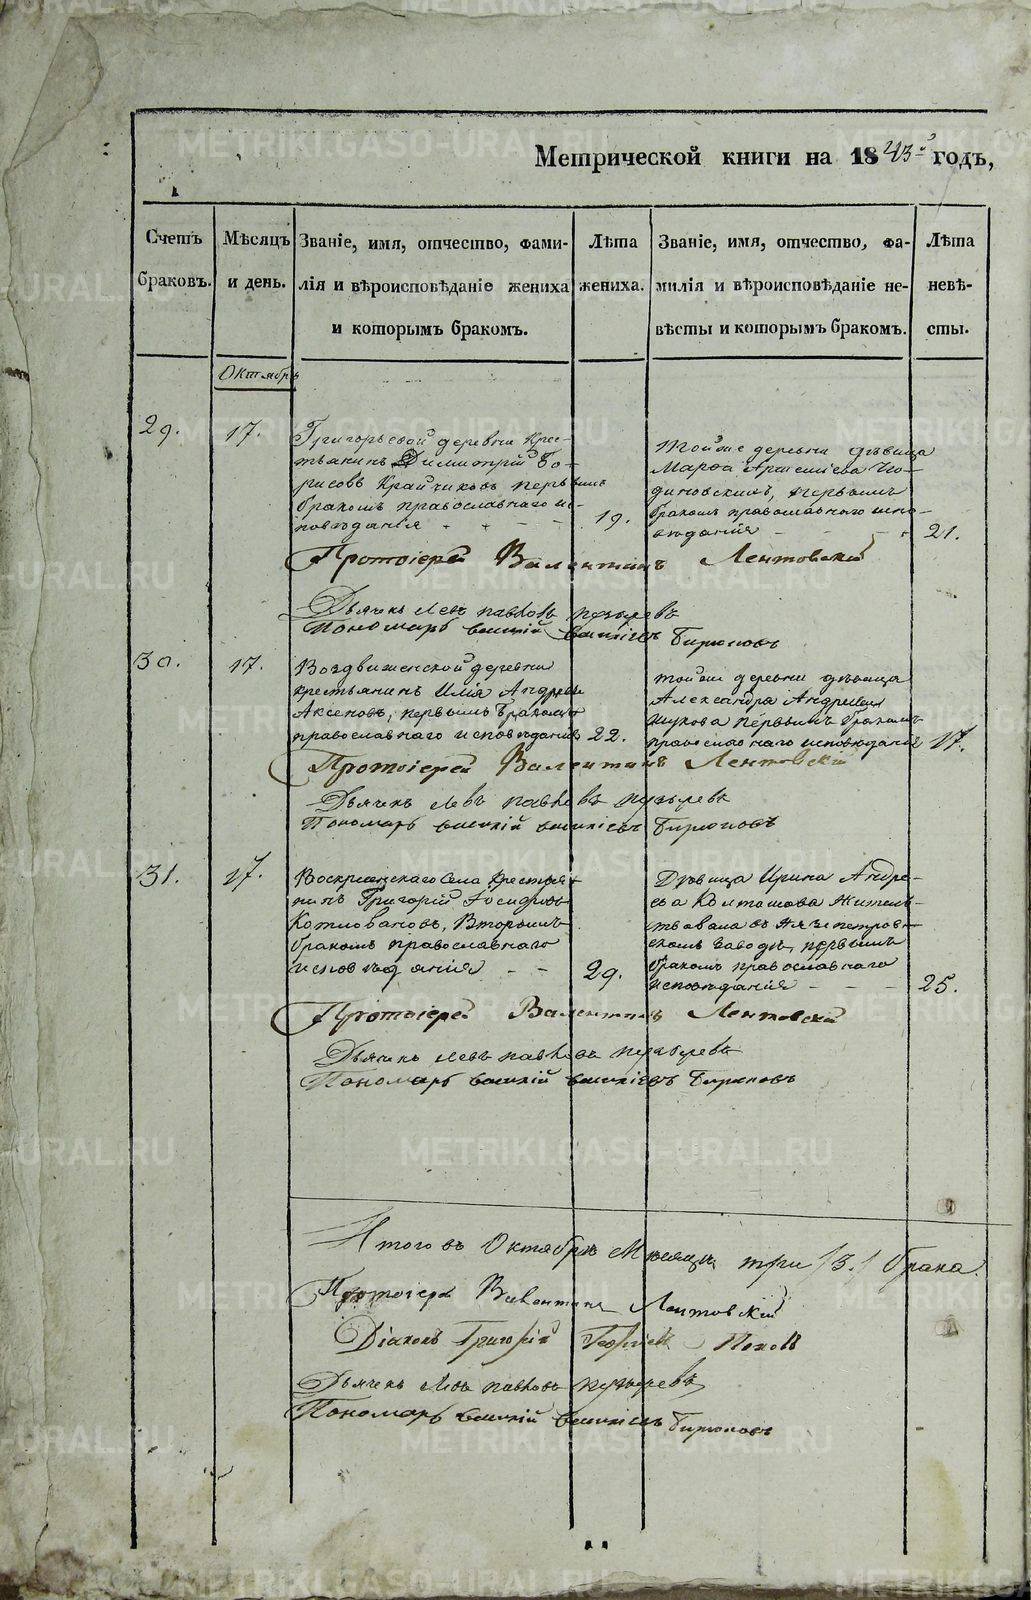 Метрической книги на 1843й годъ,
Счетъ браковъ.
Мѣсяцъ и день.
Званіе, имя, отчество, фами-
лія и вѣроисповѣданіе жениха
и которымъ бракомъ.
Лѣта
жениха.
Званіе, имя, отчество, фа-
милія и вѣроисповѣданіе не-
вѣсты и которымъ бракомъ.
Лѣта
невѣ-
сты.
Октябрь
29.
17.
Григорьевой деревни Крес-
тьянинъ Димитрій Бо-
рисовъ Крайчиковъ первымъ
бракомъ православнаго ис-
повѣданія
19.
Тойже деревни дѣвица
Марѳа
первымъ
бракомъ православнаго испо-
вѣданія
21.
Протоіерей Валентинъ Лентовскій
Дьячекъ Левъ
Пономарь Василій Бирюковъ
30.
17.
Воздвиженской деревни
крестьянинъ Илія Андреевъ
Аксеновъ, первымъ бракомъ
православнаго исповѣданія
22.
тойже деревни дѣвица
Александра Андреева
первымъ бракомъ
православнаго исповѣданія
17.
Протоіерей Валентинъ Лентовскій
Дьячекъ Левъ
Пономарь Василій Бирюковъ
31.
17.
Воскресенскаго Села Крестья-
нинъ Григорій
Котловановъ, Вторымъ
бракомъ православнаго
исповѣданія
29.
Дѣвица Ирина Андре-
ева Колташова Житель-
ствовала въ Нязепетровс-
комъ Заводѣ, первымъ
бракомъ православнаго
исповѣданія
25.
Протоіерей Валентинъ Лентовскій
Дьячекъ Левъ
Пономарь Василій Бирюковъ
Итого въ Октябрѣ Мѣсяцѣ три /3./ брака.
Протоіерей Валентинъ Лентовскій
Діаконъ Григорій Георгіевъ Поповъ
Дьячекъ Левъ
Пономарь Василій Бирюковъ
METRIKI.GASO-URAL.RU